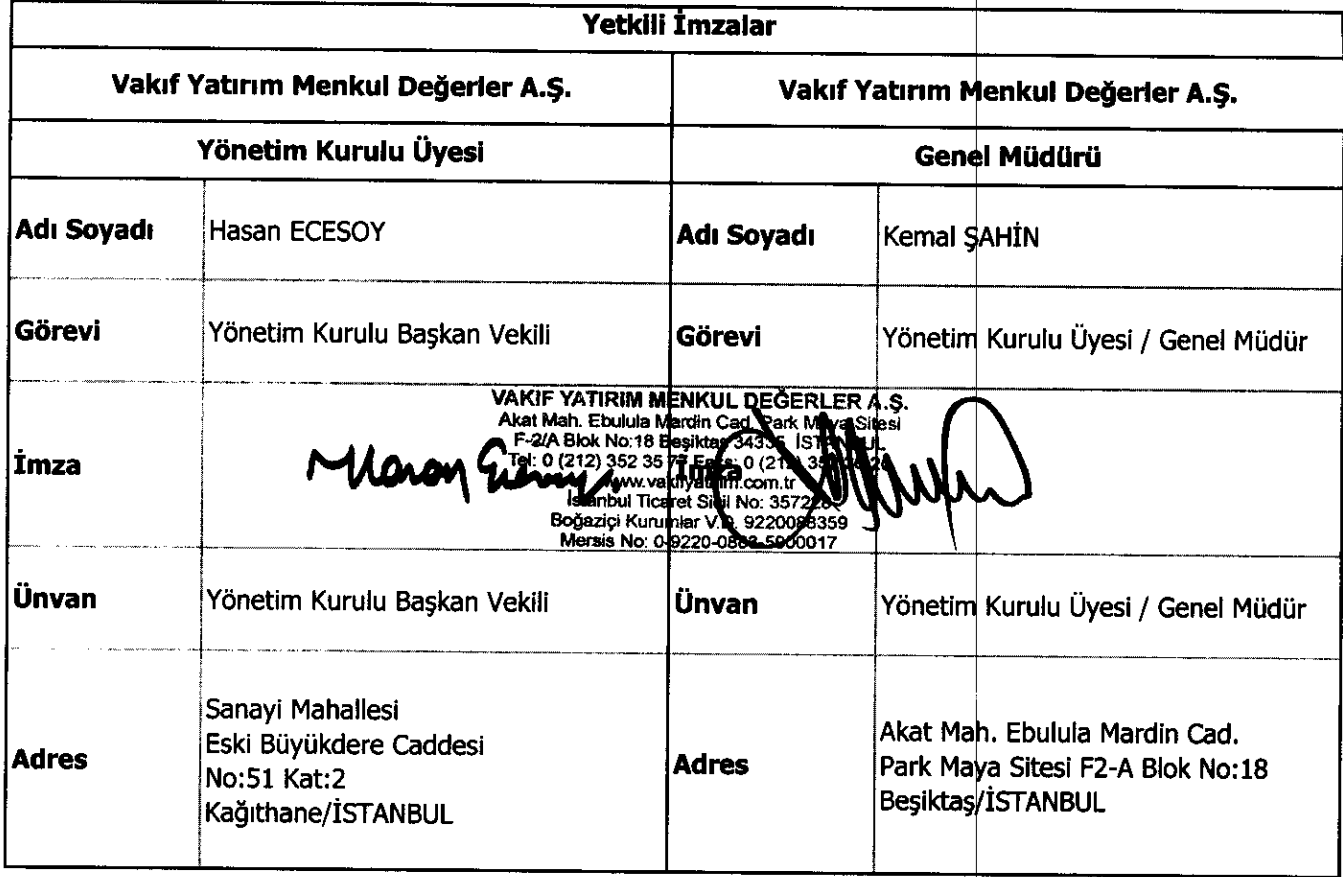 Yetkili İmzalar
Vakıf Yatırım Menkul Değerler A.Ş.
Vakıf Yatırım Menkul Değerler A.Ş.
Yönetim Kurulu Üyesi
Genel Müdürü
Adı Soyadı
Hasan ECESOY
Adı Soyadı
Kemal ŞAHİN
Görevi
Yönetim Kurulu Başkan Vekili
Görevi
Yönetim Kurulu Üyesi / Genel Müdür
İmza
VAKIF YATIRIM MENKUL DEĞERLER A.Ş.
Akat Mah. Ebulula Mardin Cad. Park Maya Sitesi
F-2/A Blok No:18 Beşiktaş 34335 İSTANBUL
Tel: 0 (212) 352 35 77 Faks: 0 (212)
İmza
www.vakifyatirim.com.tr
İstanbul Ticaret Sicil No:
Boğaziçi Kurumlar V.D. 9220088359
Mersis No: 0-9220-0883-5900017
Ünvan
Yönetim Kurulu Başkan Vekili
Ünvan
Yönetim Kurulu Üyesi / Genel Müdür
Adres
Sanayi Mahallesi
Eski Büyükdere Caddesi
No:51 Kat:2
Kağıthane/İSTANBUL
Adres
Akat Mah. Ebulula Mardin Cad.
Park Maya Sitesi F2-A Blok No:18
Beşiktaş/İSTANBUL